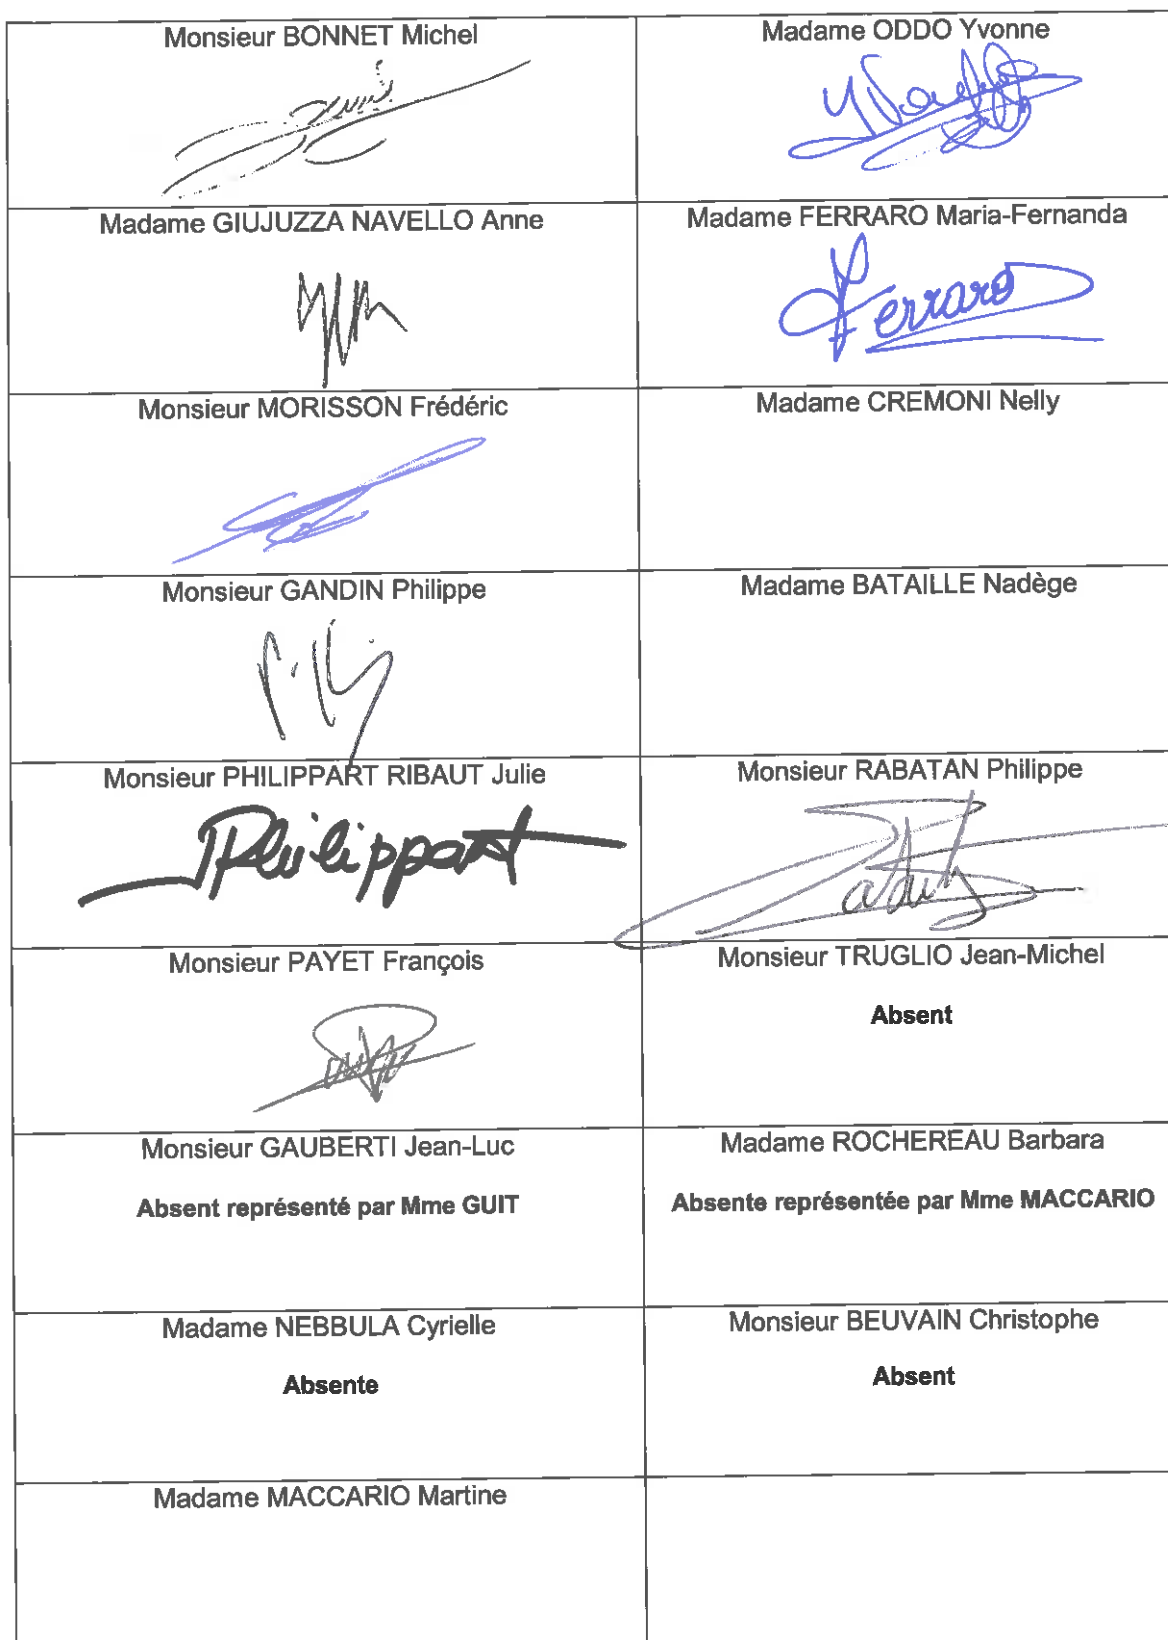 Monsieur BONNET Michel
Madame ODDO Yvonne
Madame GIUJUZZA NAVELLO Anne
Madame FERRARO Maria-Fernanda
Ferraro
Monsieur MORISSON Frédéric
Madame CREMONI Nelly
Monsieur GANDIN Philippe
Madame BATAILLE Nadège
Monsieur PHILIPPART RIBAUT Julie
Monsieur RABATAN Philippe
JPhilippart
Monsieur PAYET François
Monsieur TRUGLIO Jean-Michel
Absent
Monsieur GAUBERTI Jean-Luc
Madame ROCHEREAU Barbara
Absent représenté par Mme GUIT
Absente représentée par Mme MACCARIO
Madame NEBBULA Cyrielle
Monsieur BEUVAIN Christophe
Absente
Absent
Madame MACCARIO Martine